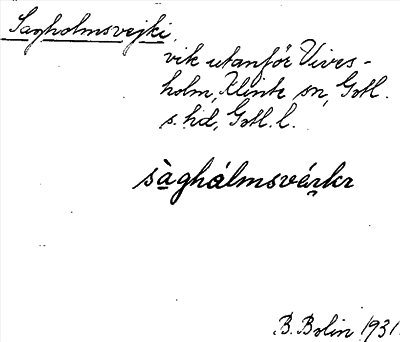 Sagholmsvejki,
vik utanför Vives-
holm, Klinte sn, Gotl.
s. hd, Gotl. l.
sàghálmsváɲkɪ
B. Bolin 1931.